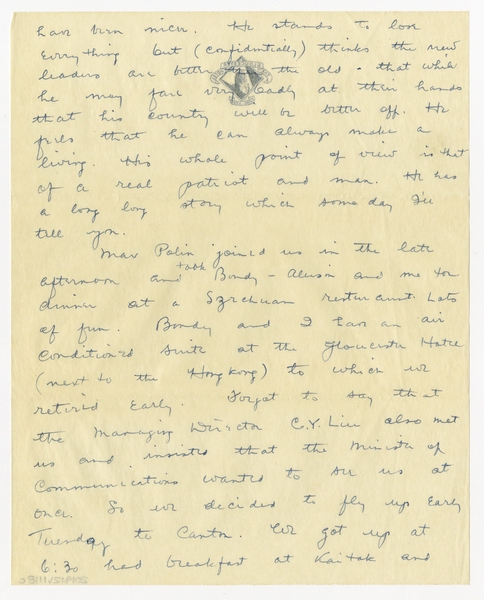 have been nicer. He stands to lose
everything but (confidentially) thinks the new
leaders are better than the old - that while
he may fare very badly at their hands
that his country will be better off. He
feels that he can always make a
living. His whole point of view is that
of a real patriot and man. He has
a long long story which some day I'll
tell you.
Max Polin joined us in the late
afternoon and took Bondy - Alison and me for
dinner at a Szechuan restaurant. Lots
of fun. Bondy and I have an air
conditioned suite at the Gloucester Hotel
(next to the Hongkong) to which we
retired early. Forgot to say that
the Managing Director C.Y. Liu also met
us and insisted that the Minister of
Communications wanted to see us at
once. So we decided to fly up early
Tuesday to Canton. We got up at
6:30 had breakfast at Kaitak and